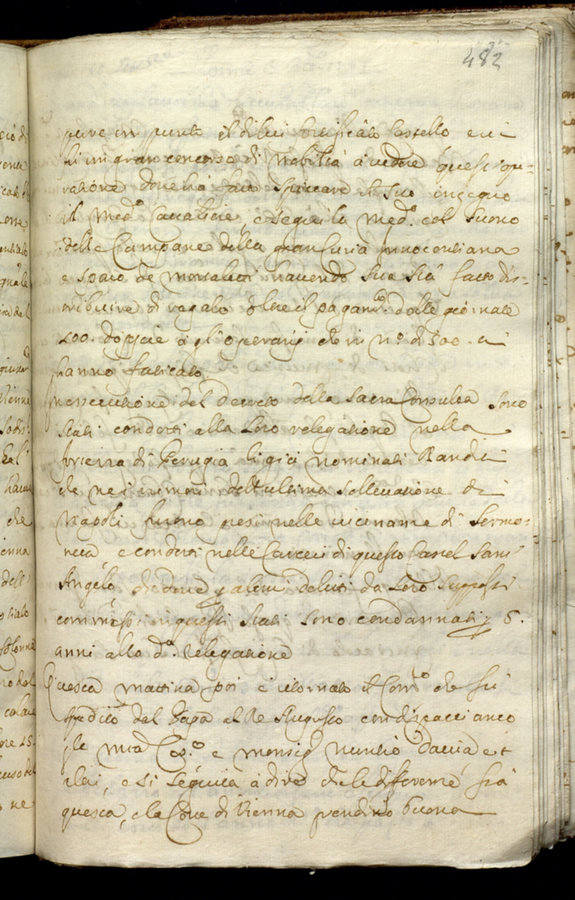 482
pure in punto
di un gran concorso di Nobiltà à vedere quest' ope-
ratione dove hà fatto spiccare il suo ingegno
il med.º Cavaliere, e seguì la med.ª col suono
delle Campane della gran Curia Innocentiana
e sparo de Mortaletti havendo Sua Stà fatto dis-
tribuire di regalo oltre il pagam.to delle giornate
200. doppie à gl'operarij che in n.º di 500. vi
hanno faticato
In essecutione del decreto della Sacra Consulta sono
stati condotti alla loro relegatione nella
fortezza di Perugia li già nominati Banditi
che ne i rumori dell'ultima sollevatione di
Napoli furono presi nelle vicinanze di Sermo-
neta, e condotti nelle Carceri di questo Castel Sant
Angelo, di dove p altri delitti da loro supposti
commessi in questi Stati sono condannati p 5.
anni alla d.ª Relegatione
Questa mattina poi è ritornato il Corr.º che fù
spedito dal Papa al Rè Augusto con dispacci anco
p le mia e Monsig.r Nuntio Davia et
altri, e si seguita à dire che le differenze frà
questa, e la Corte di Vienna prendino buona